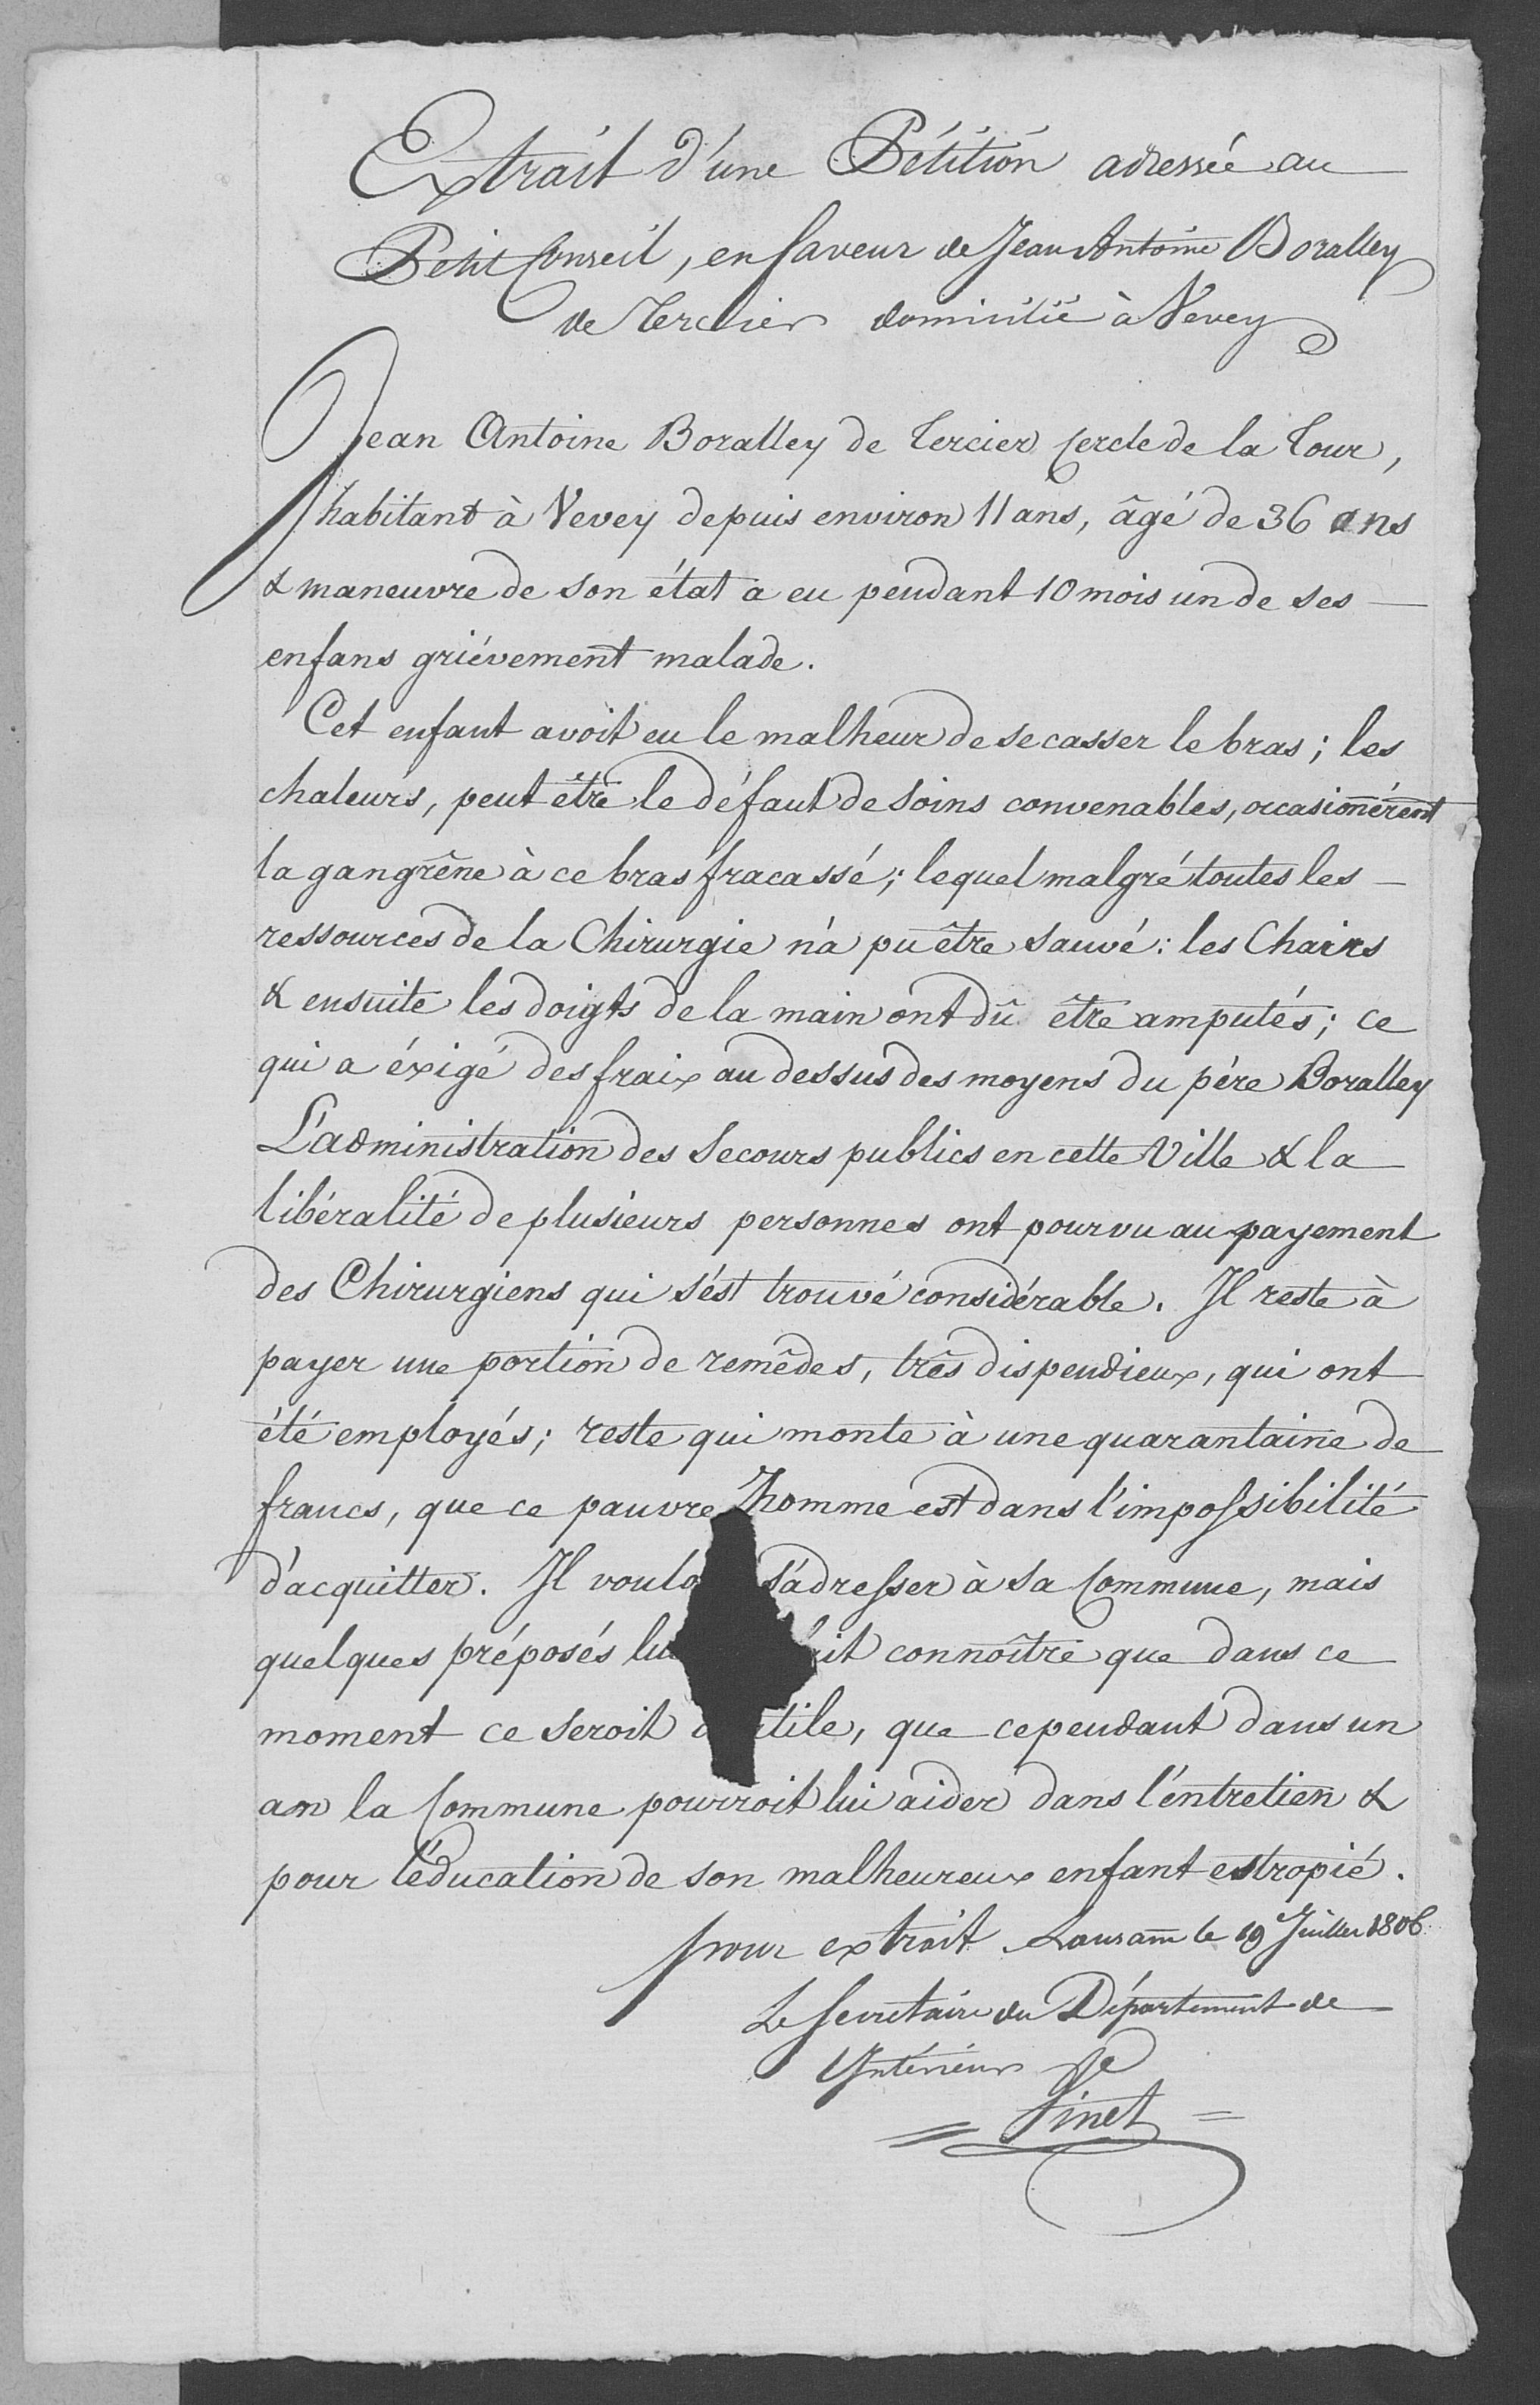 Extrait d'une Pétition adressée au
Petit Conseil, en faveur de Jean Antoine Boralley
de Tercier domicilié à Vevey
Jean Antoine Boralley de Tercier Cercle de la Tour,
habitant à Vevey depuis environ 11 ans, âgé de 36 ans
& maneuvre de son état a eu pendant 10 mois un de ses
enfans griévement malade.
Cet enfant avoit eu le malheur de se casser le bras; les
chaleurs, peut être le défaut de soins convenables, occasionnérent
la gangrêne à ce bras fracassé; lequel malgré toutes les
ressources de la Chirurgie n'a pu être sauvé: les Chairs
& ensuite les doigts de la main ont dû être amputés; ce
qui a éxigé des fraix au dessus des moyens du pére Boralley
L'administration des Secours publics en cette Ville & la
libéralité de plusieurs personnes ont pourvu au payement
des Chirurgiens qui s'est trouvé considérable. Il reste à
payer une portion de remêdes, três dispendieux, qui ont
été employés; reste qui monte à une quarantaine de
francs, que ce pauvre homme est dans l'impossibilité
d'acquitter. Il voulo s'adresser à sa Commune, mais
quelques préposés lu ait connoître que dans ce
moment ce seroit tile, que cependant dans un
an la Commune pourroit lui aider dans l'entretien &
pour l'éducation de son malheureux enfant estropié.
pour extrait. Lausanne le 19 Juillet 1806
Le Secrétaire du Département de
Intérieur
Vinet